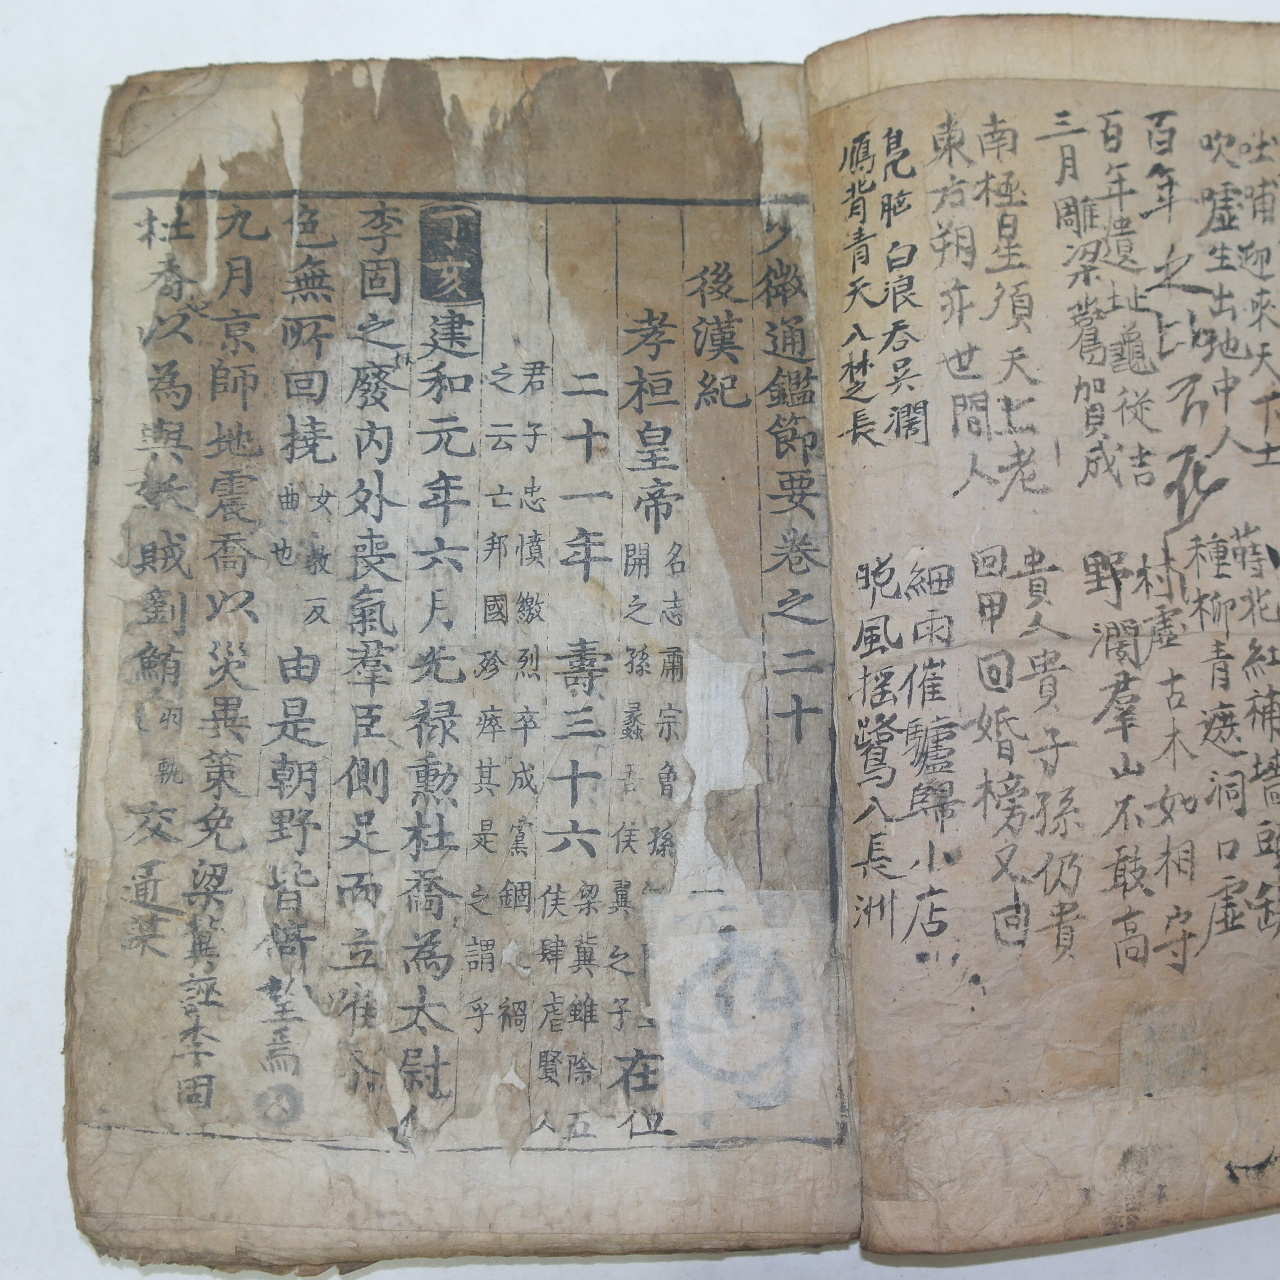 吐哺迎來天下士
吹噓生出地中人
百年之
百年遺址龜從吉
三月雕梁鷰賀成
南極星須天上老
東方朔亦世間人
鳧脑白浪吞吳濶
鴈背青天入楚長
蒔花紅補墻頭缺
種柳青遮洞口虛
村虛古木如相守
野濶羣山不敢高
貴人貴子孫仍貴
回甲回婚榜又回
細雨催驢歸小店
晩風搖鷺入長洲
少微通鑑節要卷之二十
後漢紀
孝桓皇帝 名志肅宗曾孫
開之孫蠡吾侯翼之子 在位
二十一年 壽三十六 梁冀雖除五
侯肆虐賢人
君子忠憤激烈卒成黨錮之禍
之云亡邦國殄瘁其是之謂乎
丁亥 建和元年六月光禄勲杜喬為太尉
李固之廢內外喪氣羣臣側足而立唯喬
色無所回撓 女教反
曲也 由是朝野皆倚望焉
九月京師地震喬以災異策免梁冀誣李固
杜喬以為與妖賊劉鮪 交通